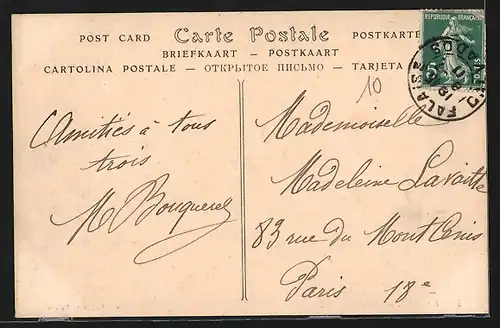 POST CARD Carte Postale POSTKARTE
BRIEFKAART — POSTKAART
CARTOLINA POSTALE — ОТКРЫТОЕ ПИСЬМО — TARJETA
RÉPUBLIQUE FRANÇAISE
FALAISE
CALVADOS
10
Amitiés à tous
trois
M Bouquerel
Mademoiselle
Madeleine
83 rue du Mont Cenis
Paris 18e